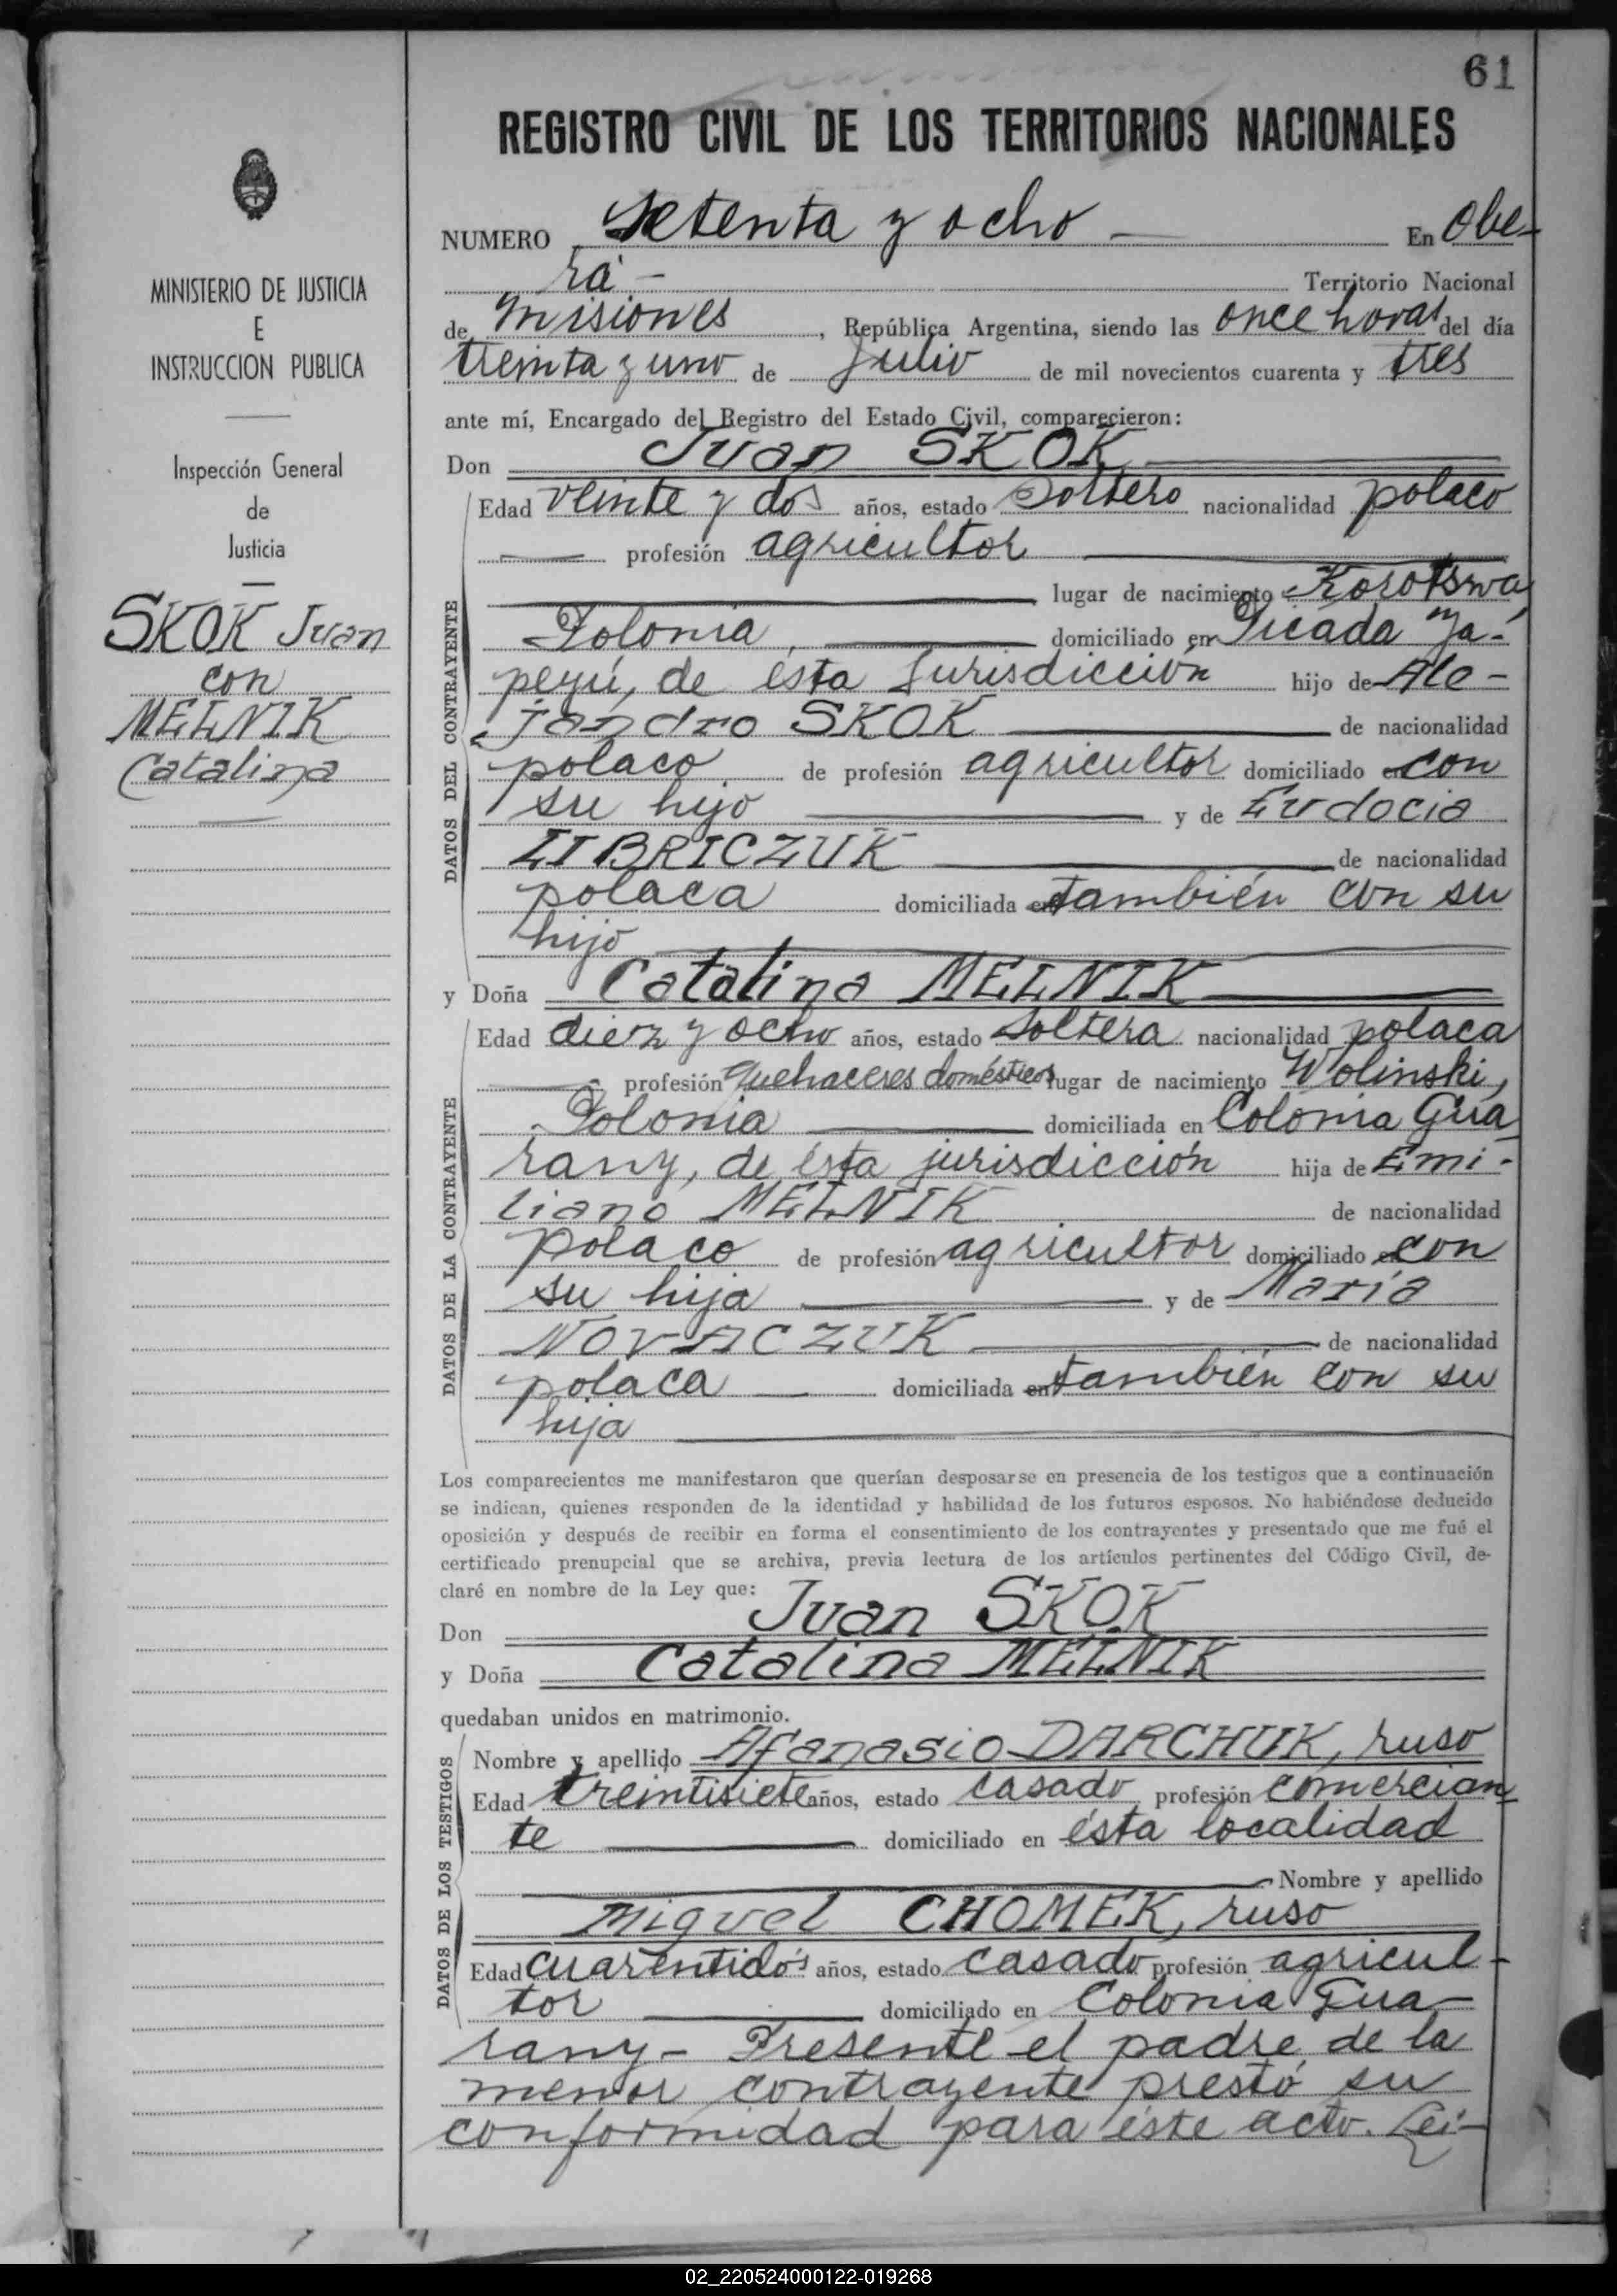 61
REGISTRO CIVIL DE LOS TERRITORIOS NACIONALES
NUMERO Setenta y ocho — En Obe-
rá — Territorio Nacional
de Misiones, República Argentina, siendo las once horas del día
treinta y uno de Julio de mil novecientos cuarenta y tres
ante mí, Encargado del Registro del Estado Civil, comparecieron:
Don Juan SKOK
Edad veinte y dos años, estado Soltero nacionalidad polaco
profesión agricultor
lugar de nacimiento Korotswa
Polonia, domiciliado en Picada "Ya-
peyú, de ésta Jurisdicción hijo de Ale-
jandro SKOK de nacionalidad
polaco de profesión agricultor domiciliado en con
su hijo y de Eudocia
LIBRICZUK de nacionalidad
polaca domiciliada en también con su
hijo
y Doña Catalina MELNIK
Edad diez y ocho años, estado soltera nacionalidad polaca
profesión Quehaceres domésticos lugar de nacimiento Wolinski,
Polonia domiciliada en Colonia Gua
rany, de ésta jurisdicción hija de Emi-
liano MELNIK de nacionalidad
polaco de profesión agricultor domiciliado en con
su hija y de María
NOVACZUK de nacionalidad
polaca domiciliada en también con su
hija
DATOS DEL CONTRAYENTE
DATOS DE LA CONTRAYENTE
Los comparecientes me manifestaron que querían desposarse en presencia de los testigos que a continuación
se indican, quienes responden de la identidad y habilidad de los futuros esposos. No habiéndose deducido
oposición y después de recibir en forma el consentimiento de los contrayentes y presentado que me fué el
certificado prenupcial que se archiva, previa lectura de los artículos pertinentes del Código Civil, de-
claré en nombre de la Ley que:
Don Juan SKOK
y Doña Catalina MELNIK
quedaban unidos en matrimonio.
DATOS DE LOS TESTIGOS
Nombre y apellido Afanasio DARCHUK, ruso
Edad treintisiete años, estado casado profesión comercian
te domiciliado en ésta localidad
Nombre y apellido
Miguel CHOMEK, ruso
Edad cuarentidós años, estado casado profesión agricul-
tor domiciliado en Colonia Gua-
rany- Presente el padre de la
menor contrayente prestó su
conformidad para éste acto. Leí-
MINISTERIO DE JUSTICIA
E
INSTRUCCION PUBLICA
Inspección General
de
Justicia
SKOK Juan
con
MELNIK
Catalina
02_220524000122-019268